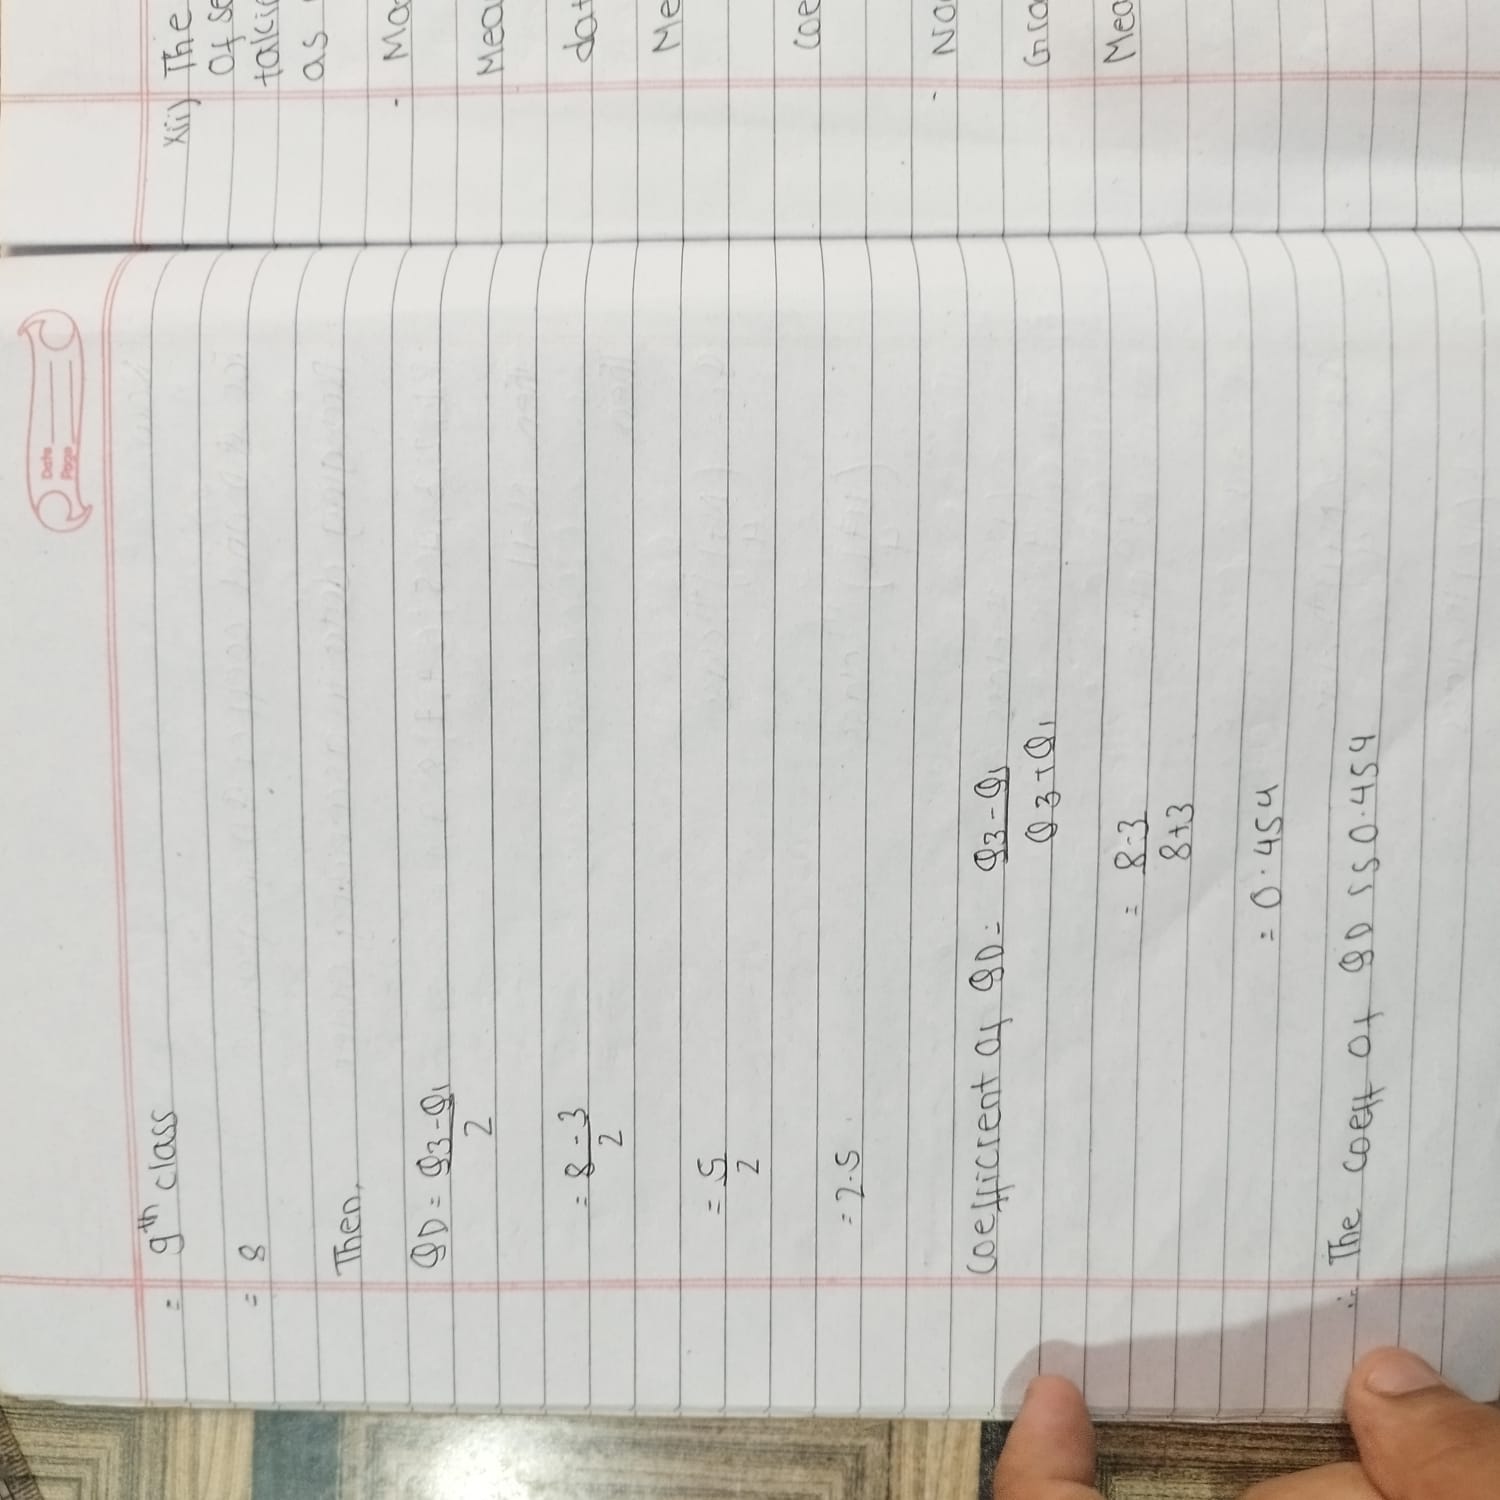 Date
Page
= 9th class
= 8
Then,
QD = Q3-Q1
2
= 8-3
2
= 5
2
= 2.5
Coefficient of QD = Q3-Q1
Q3+Q1
= 8-3
8+3
= 0.454
∴ The coeff of QD is 0.454
xii) The
Of se
takin
as
- Ma
Mea
dat
Me
coe
- No
Gra
Mea